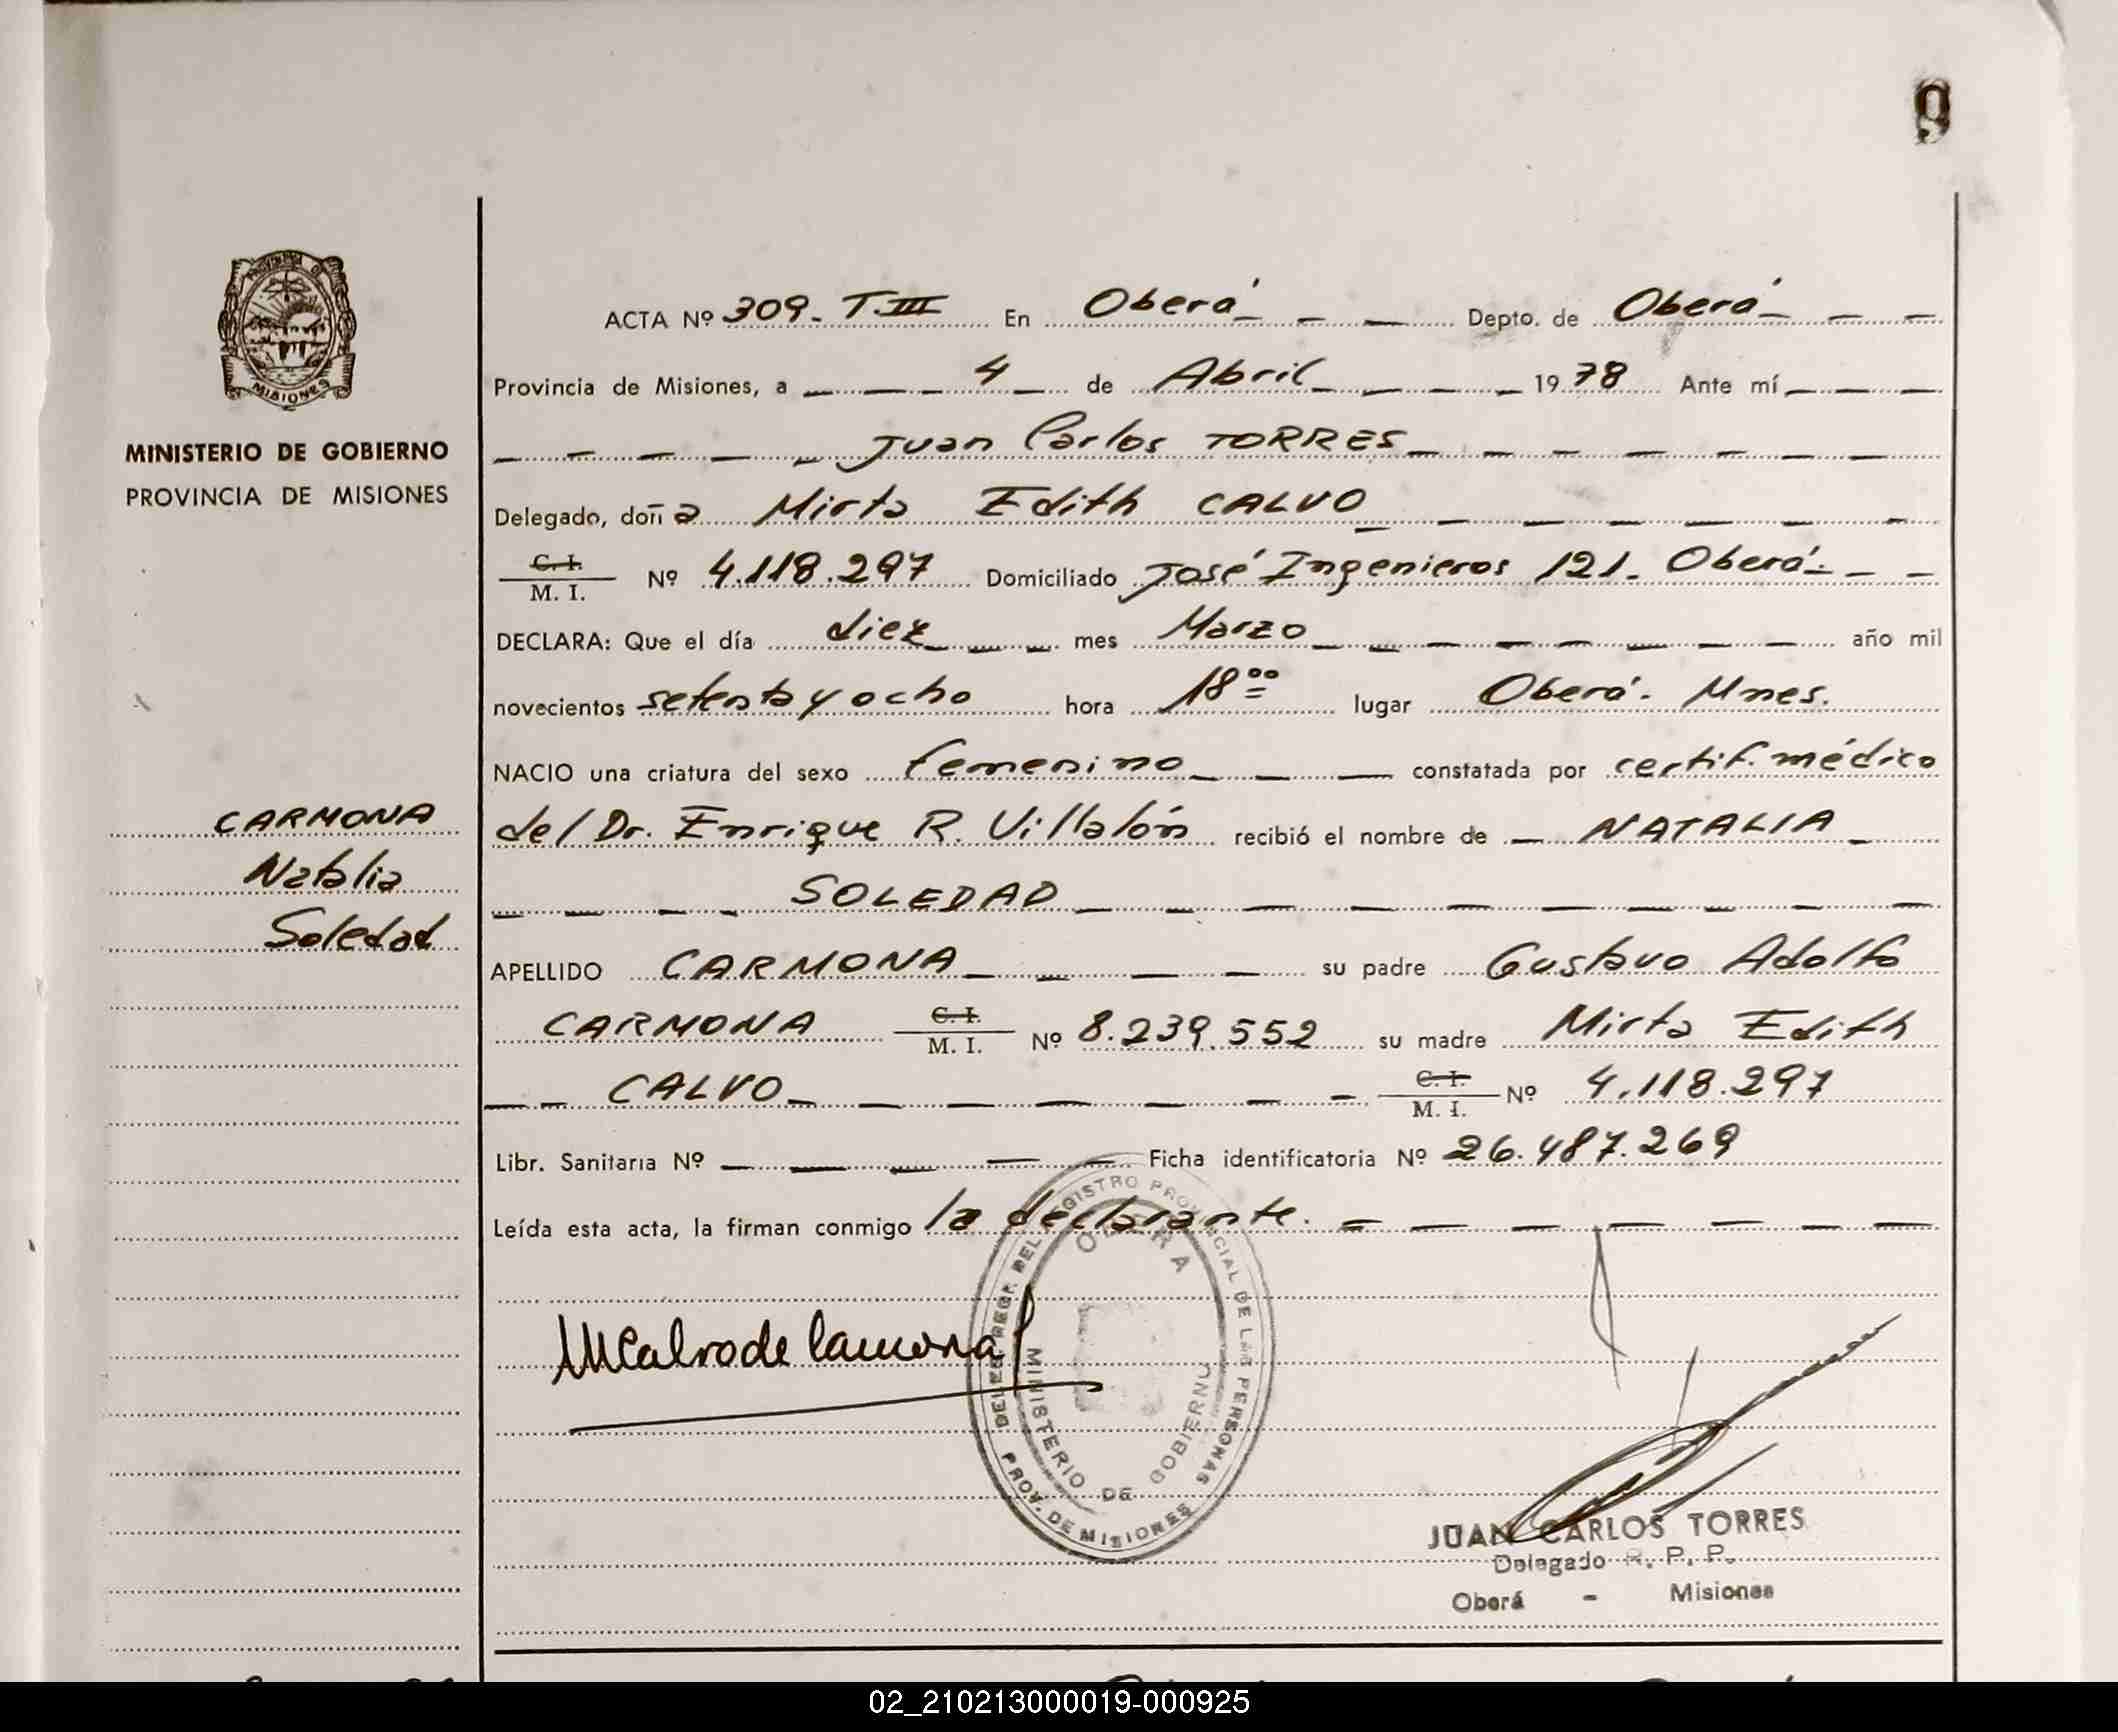 9
PROVINCIA DE
MISIONES
MINISTERIO DE GOBIERNO
PROVINCIA DE MISIONES
CARMONA
Natalia
Soledad
ACTA Nº 309. T.III En Oberá Depto. de Oberá
Provincia de Misiones, a 4 de Abril 1978 Ante mí
Juan Carlos TORRES
Delegado, doña Mirta Edith CALVO
C. I.
M. I. Nº 4.118.297 Domiciliado José Ingenieros 121. Oberá.
DECLARA: Que el día diez mes Marzo año mil
novecientos setenta y ocho hora 18⁰⁰ lugar Oberá. Mnes.
NACIO una criatura del sexo femenino constatada por certif. médico
del Dr. Enrique R. Villalón recibió el nombre de NATALIA
SOLEDAD
APELLIDO CARMONA su padre Gustavo Adolfo
CARMONA C. I. M. I. Nº 8.239.552 su madre Mirta Edith
CALVO C. I. M. I. Nº 4.118.297
Libr. Sanitaria Nº Ficha identificatoria Nº 26.487.269
Leída esta acta, la firman conmigo la declarante.
MCalvo de Carmona
REGISTRO PROVINCIAL DE LAS PERSONAS
OBERA
MINISTERIO DE GOBIERNO
PROV. DE MISIONES
JUAN CARLOS TORRES
Delegado R. P. P.
Oberá - Misiones
02_210213000019-000925